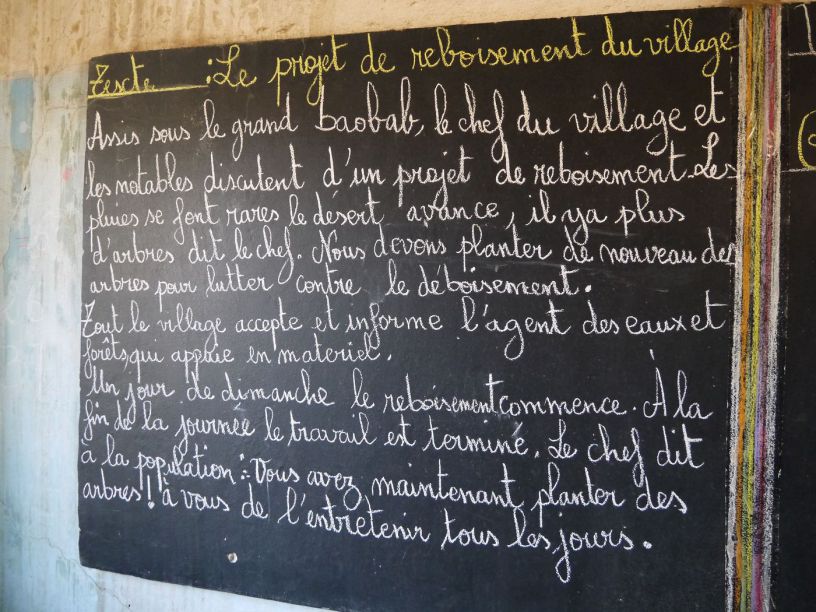 Texte : Le projet de reboisement du village
Assis sous le grand baobab, le chef du village et
les notables discutent d'un projet de reboisement. Les
pluies se font rares le désert avance, il y a plus
d'arbres dit le chef. Nous devons planter de nouveau des
arbres pour lutter contre le déboisement.
Tout le village accepte et informe l'agent des eaux et
forêts qui appuie en matériel.
Un jour de dimanche le reboisement commence. À la
fin de la journée le travail est terminé. Le chef dit
à la population : Vous avez maintenant planter des
arbres ! à vous de l'entretenir tous les jours.